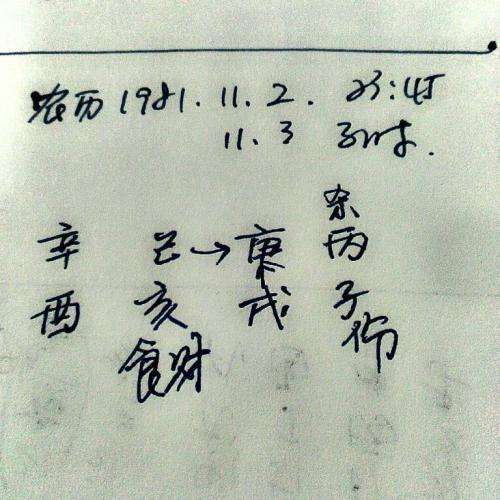 农历 1981. 11. 2. 23:45
11. 3 子时.
杀
辛 己→庚 丙
酉 亥 戌 子
食财 伤